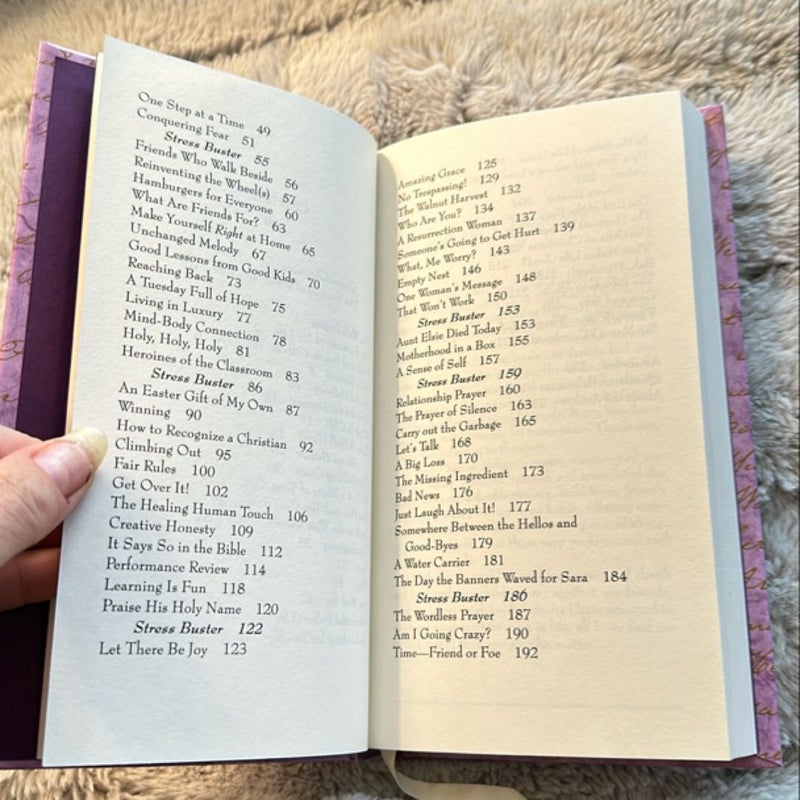 One Step at a Time 49
Conquering Fear 51
Stress Buster 55
Friends Who Walk Beside 56
Reinventing the Wheel(s) 57
Hamburgers for Everyone 60
What Are Friends For? 63
Make Yourself Right at Home 65
Unchanged Melody 67
Good Lessons from Good Kids 70
Reaching Back 73
A Tuesday Full of Hope 75
Living in Luxury 77
Mind-Body Connection 78
Holy, Holy, Holy 81
Heroines of the Classroom 83
Stress Buster 86
An Easter Gift of My Own 87
Winning 90
How to Recognize a Christian 92
Climbing Out 95
Fair Rules 100
Get Over It! 102
The Healing Human Touch 106
Creative Honesty 109
It Says So in the Bible 112
Performance Review 114
Learning Is Fun 118
Praise His Holy Name 120
Stress Buster 122
Let There Be Joy 123
Amazing Grace 125
No Trespassing! 129
The Walnut Harvest 132
Who Are You? 134
A Resurrection Woman 137
Someone's Going to Get Hurt 139
What, Me Worry? 143
Empty Nest 146
One Woman's Message 148
That Won't Work 150
Stress Buster 153
Aunt Elsie Died Today 153
Motherhood in a Box 155
A Sense of Self 157
Stress Buster 159
Relationship Prayer 160
The Prayer of Silence 163
Carry out the Garbage 165
Let's Talk 168
A Big Loss 170
The Missing Ingredient 173
Bad News 176
Just Laugh About It! 177
Somewhere Between the Hellos and
Good-Byes 179
A Water Carrier 181
The Day the Banners Waved for Sara 184
Stress Buster 186
The Wordless Prayer 187
Am I Going Crazy? 190
Time—Friend or Foe 192